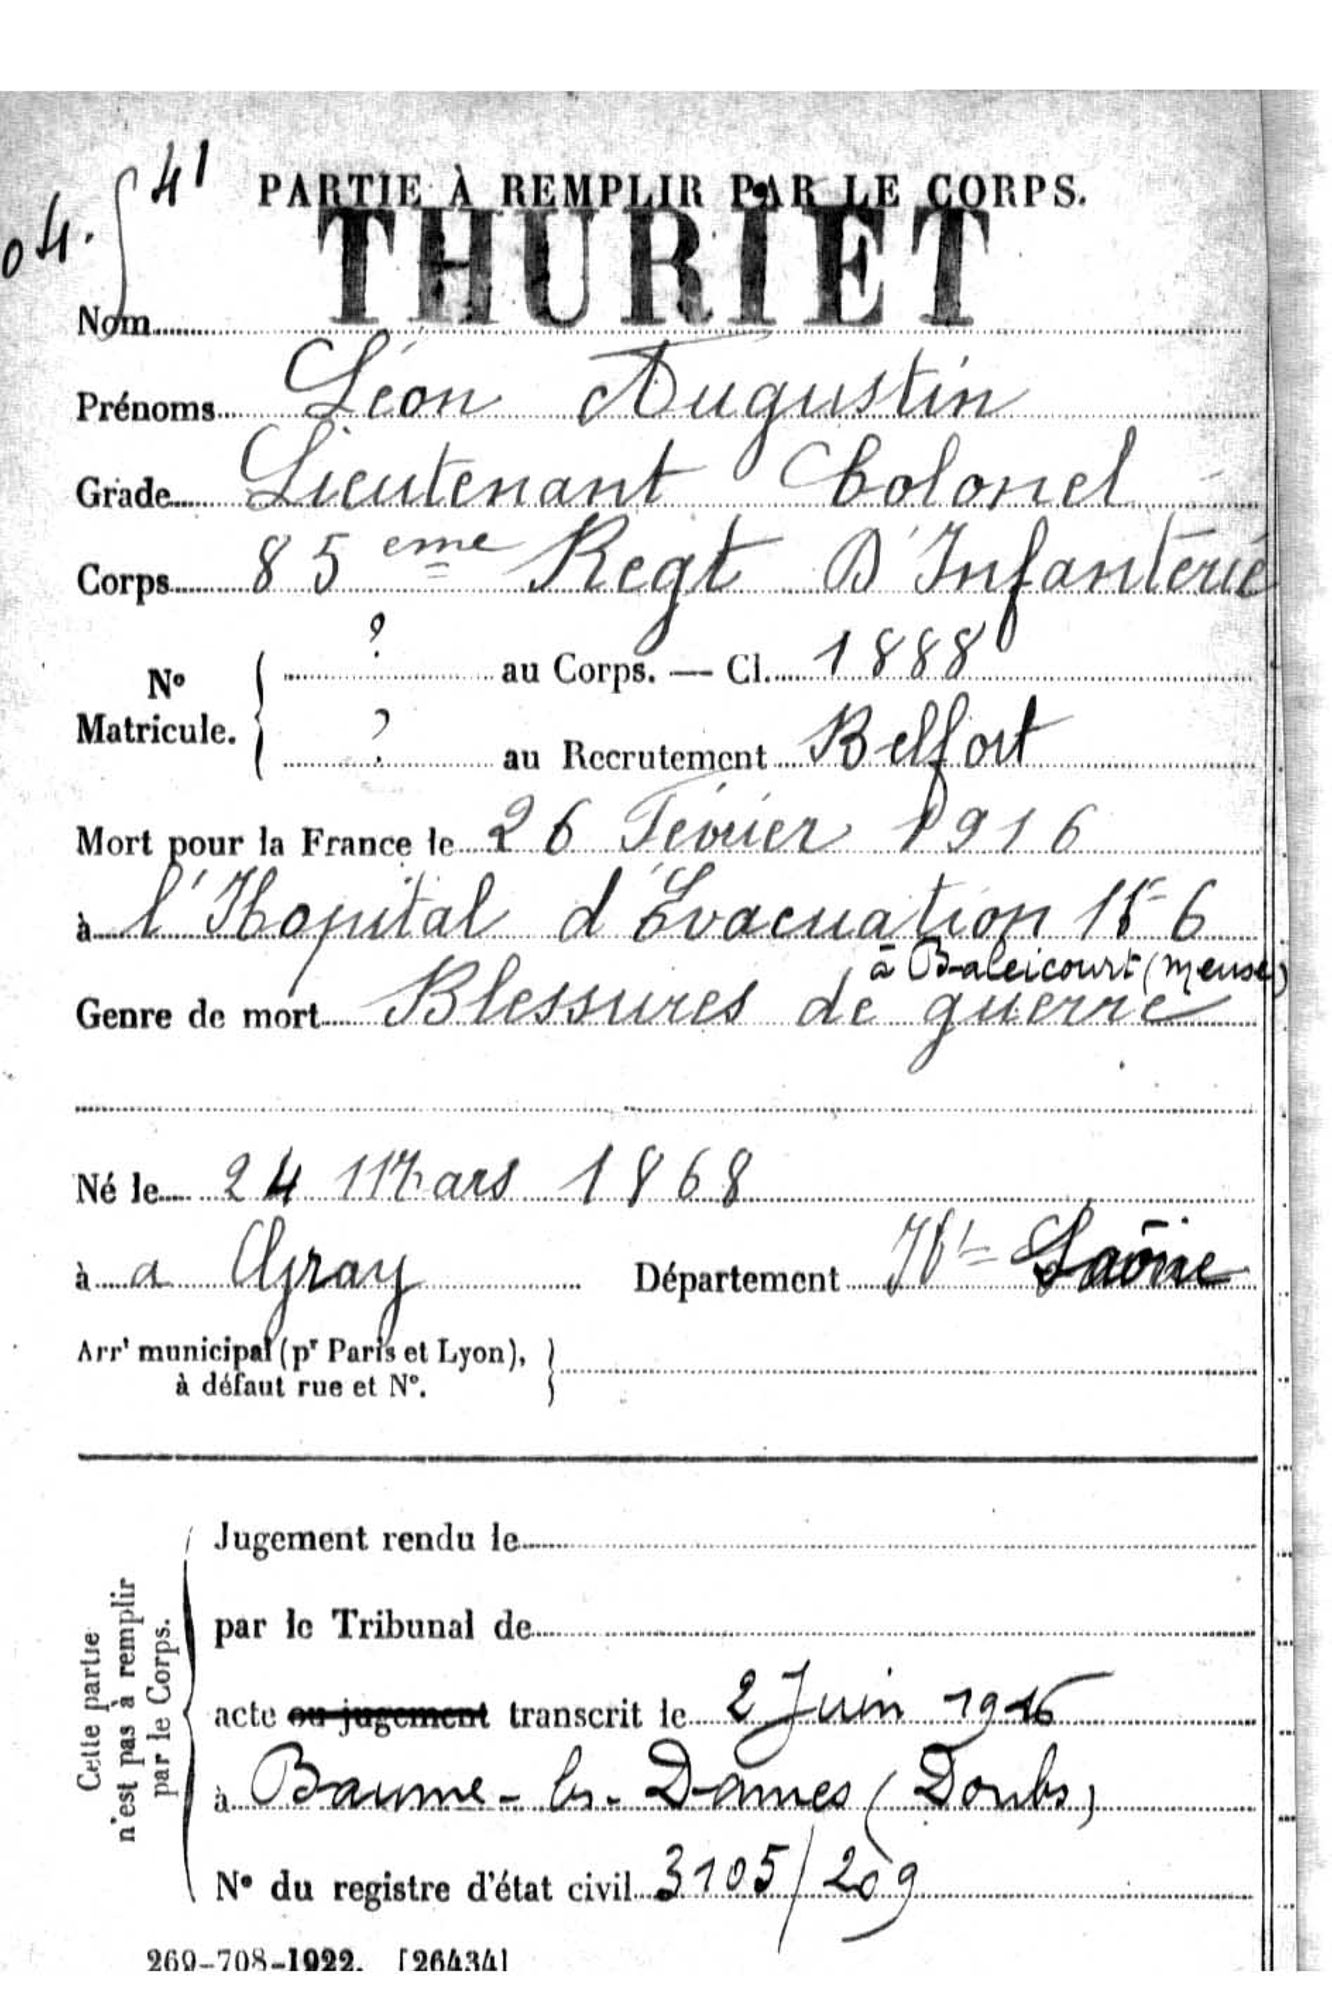 41
04.
PARTIE À REMPLIR PAR LE CORPS.
THURIET
Nom
Prénoms Léon Augustin
Grade Lieutenant Colonel
Corps 85 eme Regt D'Infanterie
N° Matricule. { ? au Corps. — Cl. 1888
? au Recrutement Belfort
Mort pour la France le 26 Février 1916
à l'Hopital d'Evacuation N° 6
à Baleicourt (Meuse)
Genre de mort Blessures de guerre
Né le 24 Mars 1868
à a Gray Département Hte Saône
Arrt municipal (pr Paris et Lyon),
à défaut rue et N°. }
Cette partie
n'est pas à remplir
par le Corps.
Jugement rendu le
par le Tribunal de
acte ou jugement transcrit le 2 Juin 1916
à Baume-les-Dames (Doubs)
N° du registre d'état civil 3105/209
269-708-1922. [26434]